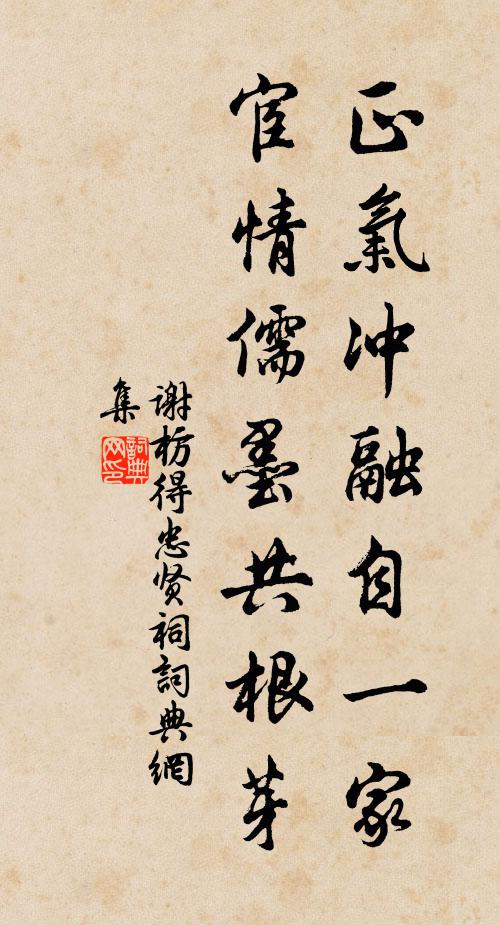 正氣冲融自一家
宦情儒墨共根芽
谢枋得忠贤祠詞典網
集
詞典网印